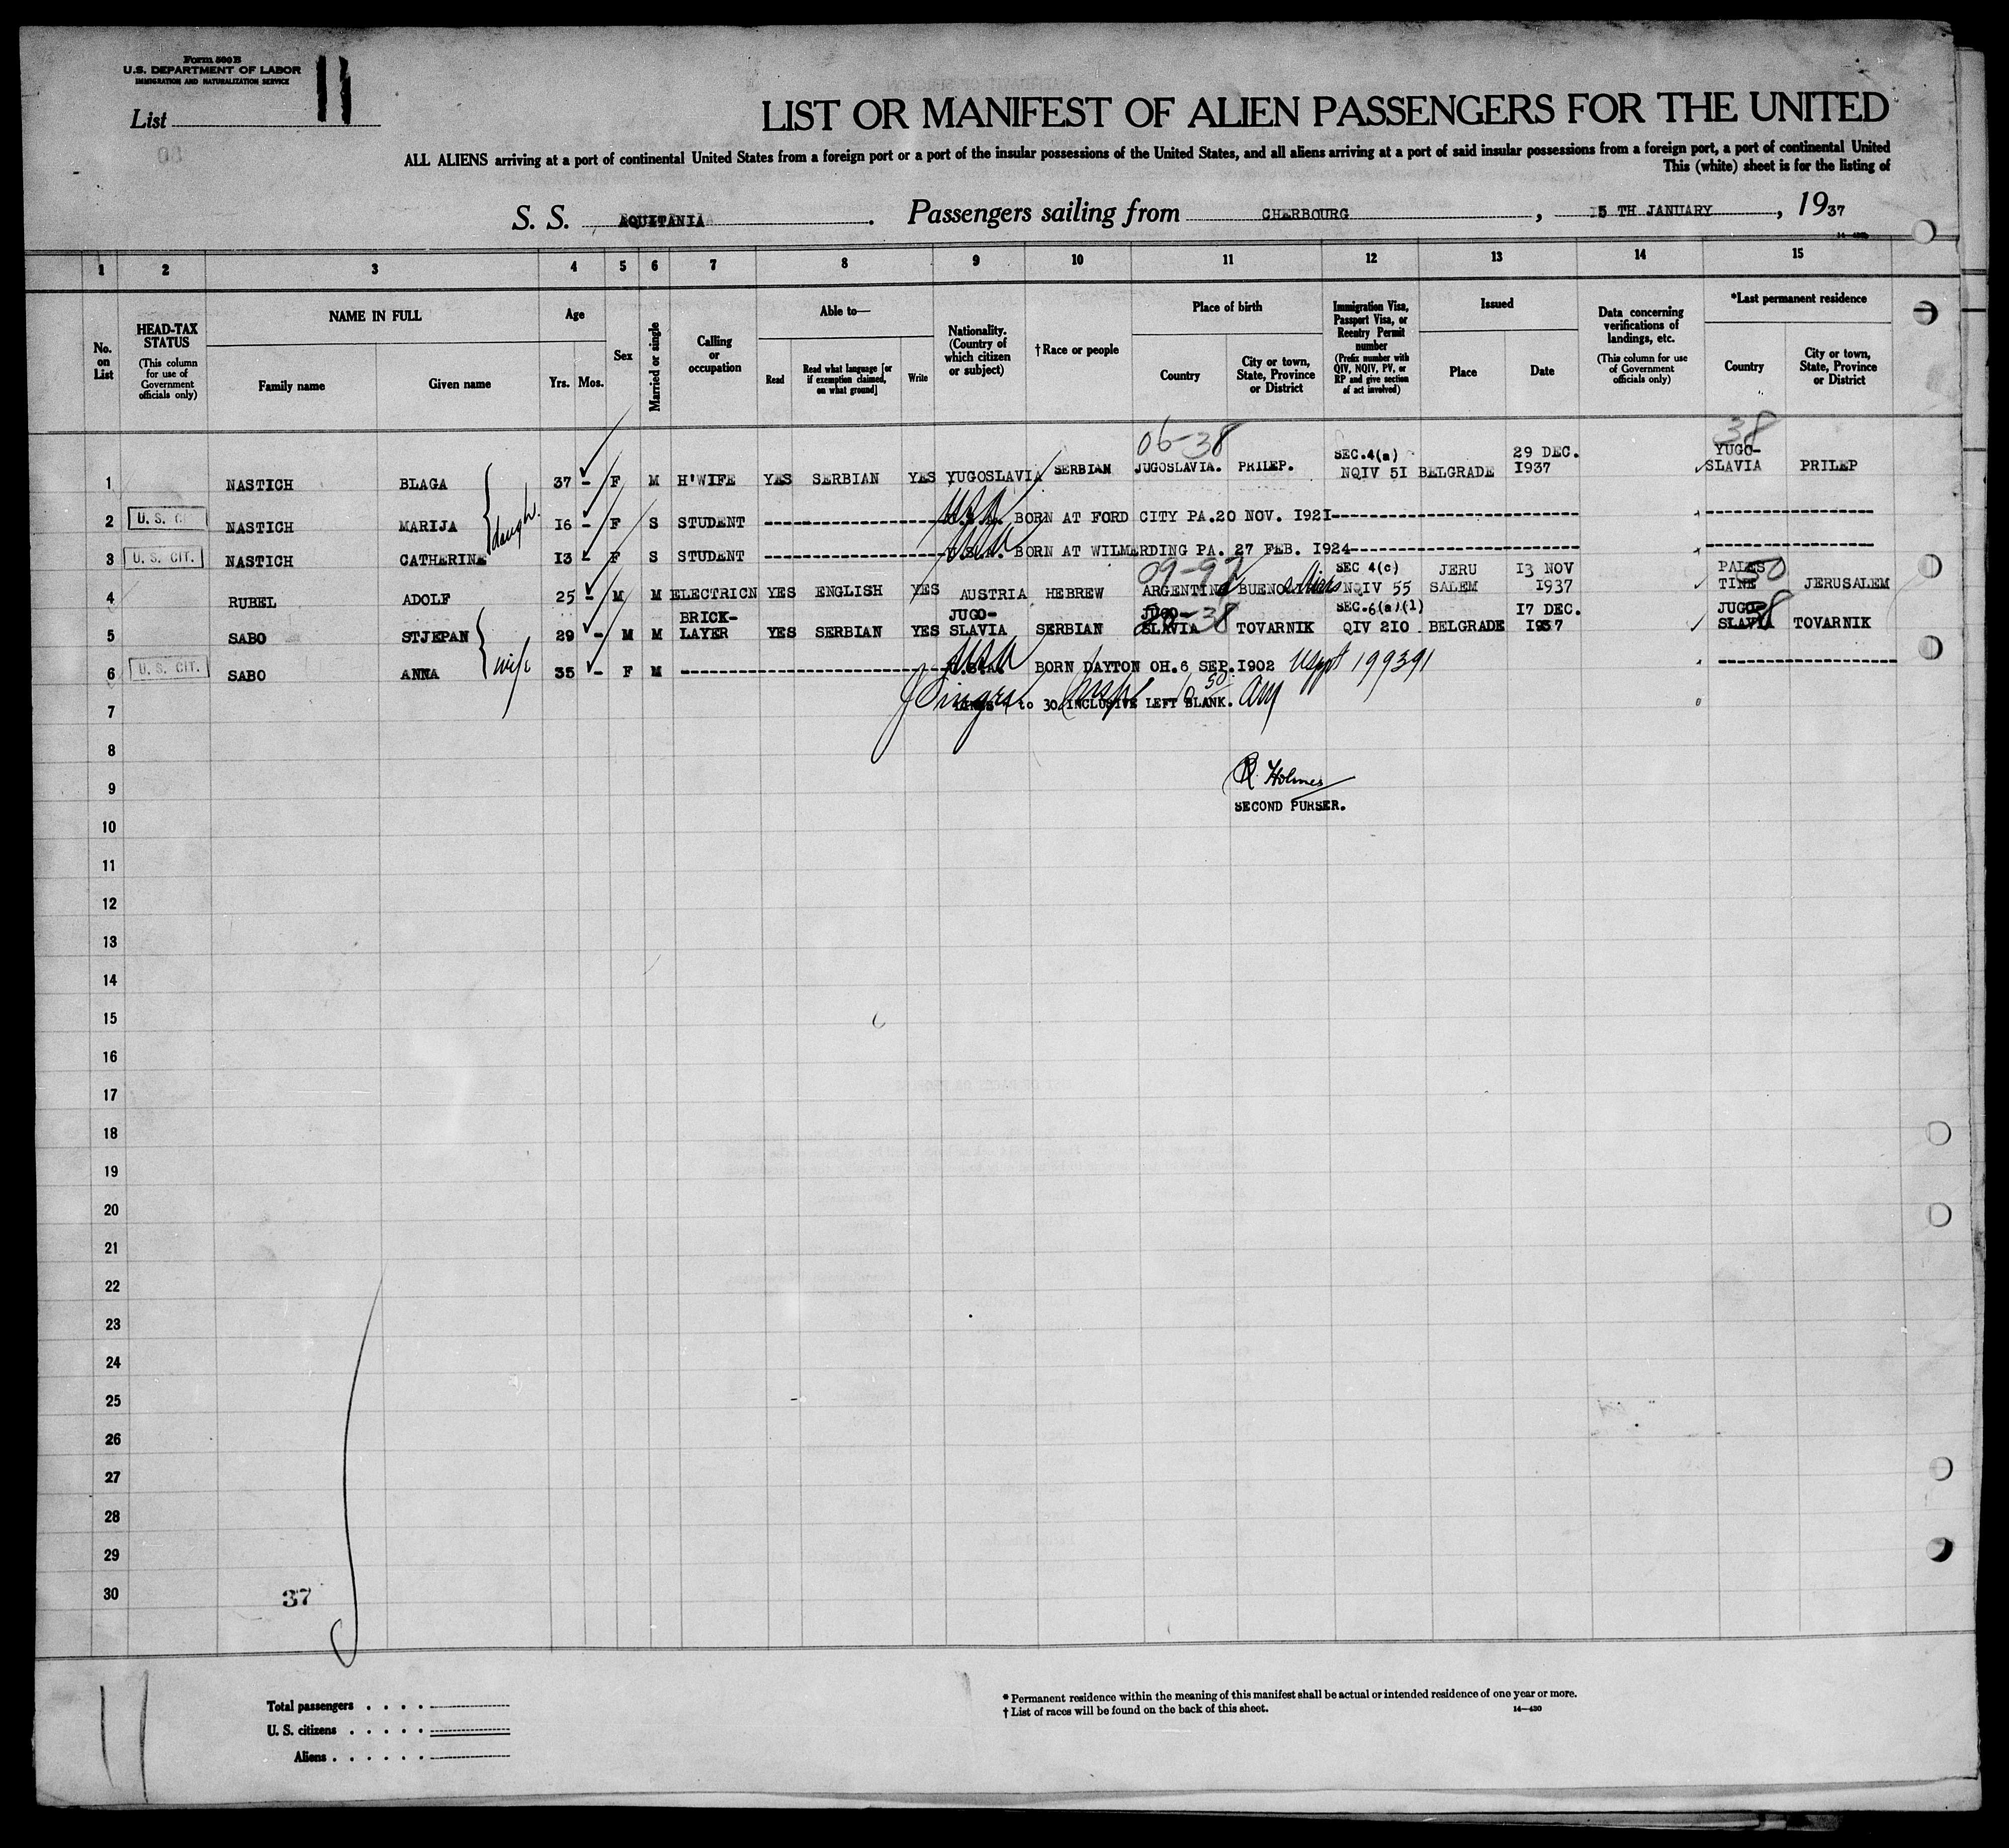 Form 500 B
U. S. DEPARTMENT OF LABOR
IMMIGRATION AND NATURALIZATION SERVICE
List 11
LIST OR MANIFEST OF ALIEN PASSENGERS FOR THE UNITED
ALL ALIENS arriving at a port of continental United States from a foreign port or a port of the insular possessions of the United States, and all aliens arriving at a port of said insular possessions from a foreign port, a port of continental United
This (white) sheet is for the listing of
S. S. AQUITANIA. Passengers sailing from CHERBOURG, 5 TH JANUARY, 1937
1 2 3 4 5 6 7 8 9 10 11 12 13 14 15
No. on List
HEAD-TAX STATUS (This column for use of Government officials only)
NAME IN FULL
Family name Given name
Age
Yrs. Mos.
Sex
Married or single
Calling or occupation
Able to—
Read
Read what language [or if exemption claimed, on what ground]
Write
Nationality. (Country of which citizen or subject)
†Race or people
Place of birth
Country
City or town, State, Province or District
Immigration Visa, Passport Visa, or Reentry Permit number (Prefix number with QIV, NQIV, PV, or RP and give section of act involved)
Issued
Place Date
Data concerning verifications of landings, etc. (This column for use of Government officials only)
*Last permanent residence
Country
City or town, State, Province or District
06-38 38
1 NASTICH BLAGA 37 - F M H'WIFE YES SERBIAN YES YUGOSLAVIA SERBIAN JUGOSLAVIA. PRILEP. SEC.4(a) NQIV 51 BELGRADE 29 DEC. 1937 YUGO-SLAVIA PRILEP
2 U. S. C NASTICH MARIJA daugh. 16 - F S STUDENT USA BORN AT FORD CITY PA.20 NOV. 1921
3 U. S. CIT. NASTICH CATHERINE 13 - F S STUDENT USA BORN AT WILMERDING PA. 27 FEB. 1924
09-97 50
4 RUBEL ADOLF 25 - M M ELECTRICN YES ENGLISH YES AUSTRIA HEBREW ARGENTINA BUENOS Aires SEC 4(c) NQIV 55 JERUSALEM 13 NOV 1937 PALESTINE JERUSALEM
38
5 SABO STJEPAN 29 - M M BRICK-LAYER YES SERBIAN YES JUGO-SLAVIA SERBIAN JUGO-SLAVIA TOVARNIK SEC.6(a)(1) QIV 210 BELGRADE 17 DEC. 1937 JUGO-SLAVIA TOVARNIK
6 U. S. CIT. SABO ANNA wife 35 - F M USA BORN DAYTON OH.6 SEP.1902 USppt 199391
7 LINES to 30 INCLUSIVE LEFT BLANK.
8
R Holmes
9
SECOND PURSER.
10
11
12
13
14
15
16
17
18
19
20
21
22
23
24
25
26
27
28
29
30
37
11
Total passengers
U. S. citizens
Aliens
* Permanent residence within the meaning of this manifest shall be actual or intended residence of one year or more.
† List of races will be found on the back of this sheet.
14—430